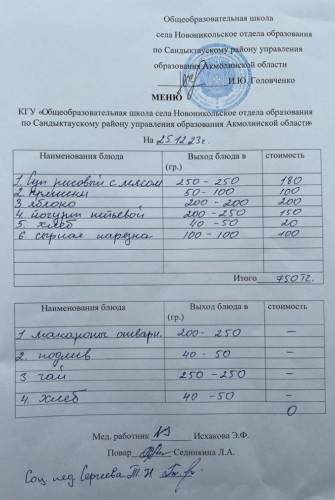 Общеобразовательная школа
села Новоникольское отдела образования
по Сандыктаускому району управления
образования Акмолинской области
И.Ю. Головченко
МЕНЮ
КГУ «Общеобразовательная школа села Новоникольское отдела образования
по Сандыктаускому району управления образования Акмолинской области»
На 25.12.23г.
Наименования блюда Выход блюда в (гр.) стоимость
1. Суп рисовый с мясом 250-250 180
2. Пряники 50-100 100
3 яблоко 200-200 200
4 йогурт питьевой 200-250 150
5 хлеб 40-50 20
6 сырная нарезка 100-100 100
Итого 750тг.
Наименования блюда Выход блюда в (гр.) стоимость
1 макароны отварн. 200-250 –
2. подлив 40-50 –
3 чай 250-250 –
4. хлеб 40-50 –
0
Мед. работник Исхакова Э.Ф.
Повар Сединкина Л.А.
Соц пед Сергеева Т Н